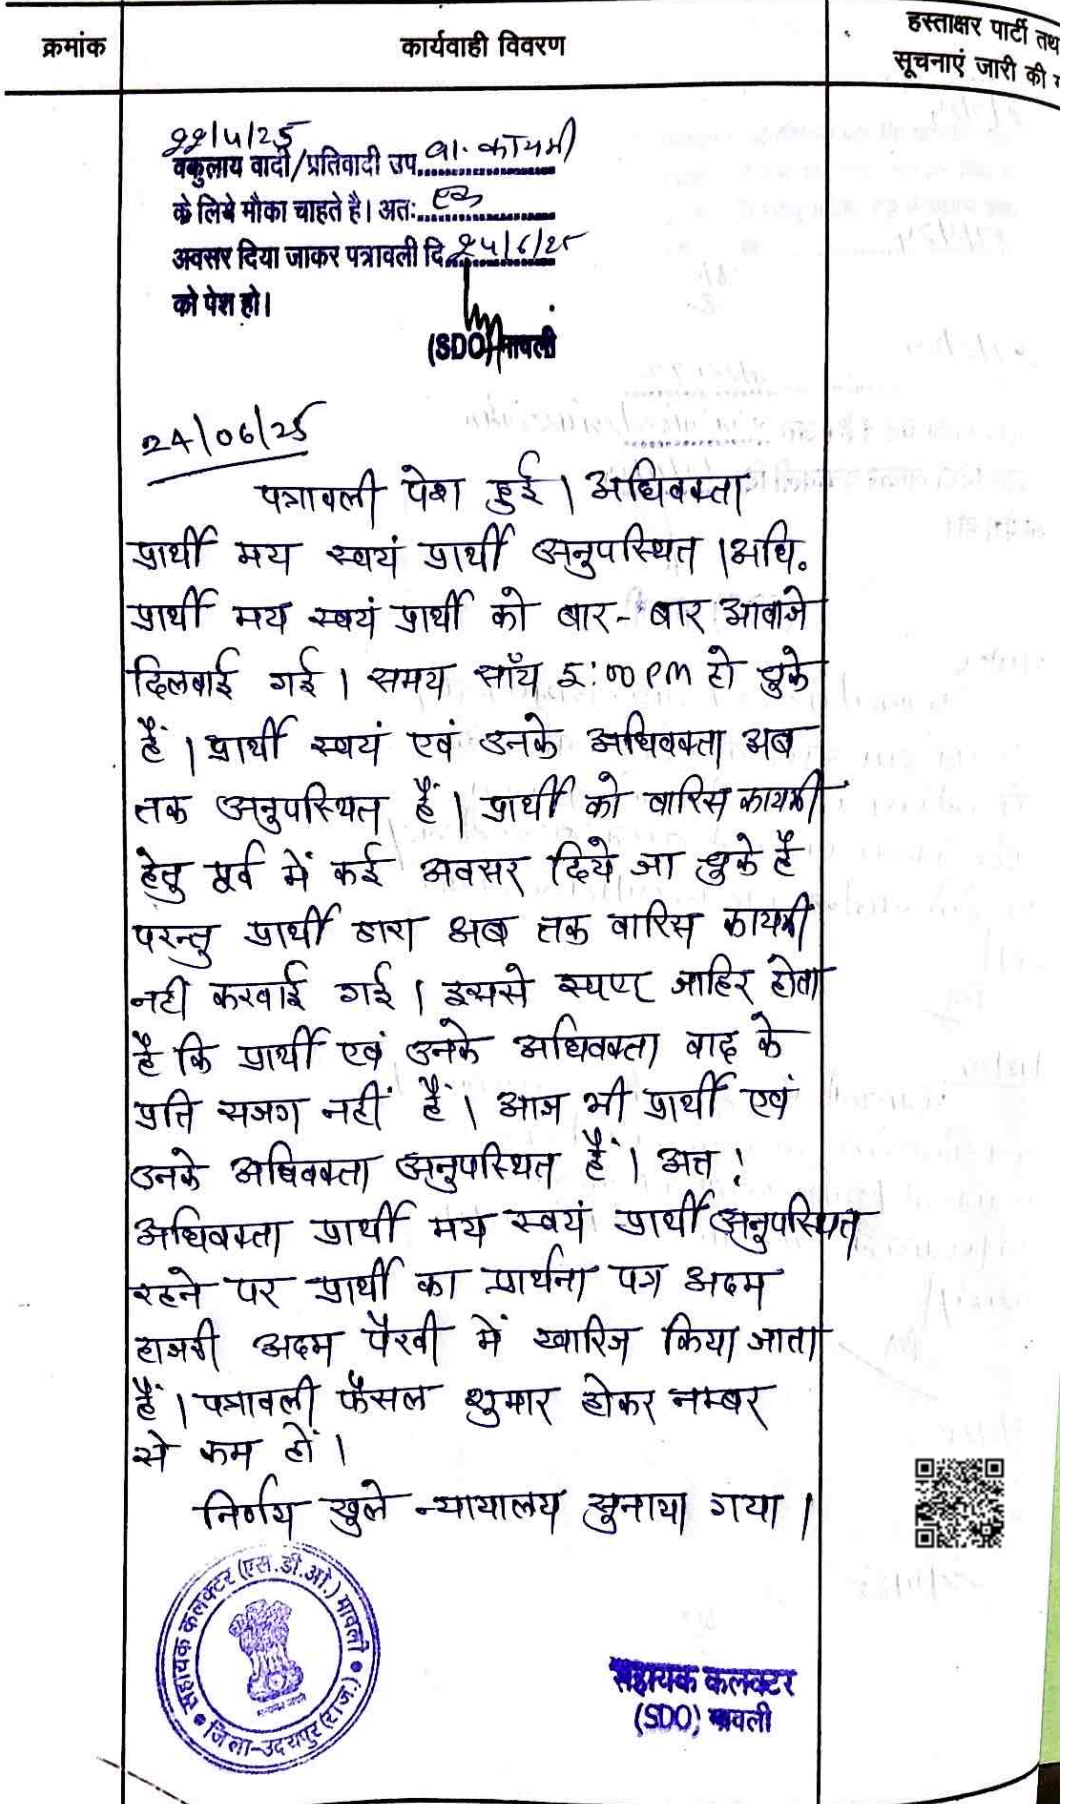 क्रमांक
कार्यवाही विवरण
हस्ताक्षर पार्टी तथ
सूचनाएं जारी की
22/5/25
वकुलाय वादी/प्रतिवादी उप. वा. कायमी
के लिये मौका चाहते है। अतः एक
अवसर दिया जाकर पत्रावली दि. 24/6/25
को पेश हो।
(SDO) मावली
24/06/25
पत्रावली पेश हुई। अधिवक्ता
प्रार्थी मय स्वयं प्रार्थी अनुपस्थित। अधि.
प्रार्थी मय स्वयं प्रार्थी को बार-बार आवाजे
दिलवाई गई। समय साँय 5:00 PM हो चुके
हैं। प्रार्थी स्वयं एवं उनके अधिवक्ता अब
तक अनुपस्थित हैं। प्रार्थी को वारिस कायमी
हेतु पूर्व में कई अवसर दिये जा चुके है
परन्तु प्रार्थी द्वारा अब तक वारिस कायमी
नही करवाई गई। इससे स्पष्ट जाहिर होता
है कि प्रार्थी एवं उनके अधिवक्ता वाद के
प्रति सजग नहीं हैं। आज भी प्रार्थी एवं
उनके अधिवक्ता अनुपस्थित हैं। अत:
अधिवक्ता प्रार्थी मय स्वयं प्रार्थी अनुपस्थित
रहने पर प्रार्थी का प्रार्थना पत्र अदम
हाजरी अदम पैरवी में खारिज किया जाता
हैं। पत्रावली फैसल शुमार होकर नम्बर
से कम हों।
निर्णय खुले न्यायालय सुनाया गया।
सहायक कलक्टर (एस.डी.ओ.) मावली
जिला-उदयपुर (राज.)
सहायक कलक्टर
(SDO) मावली